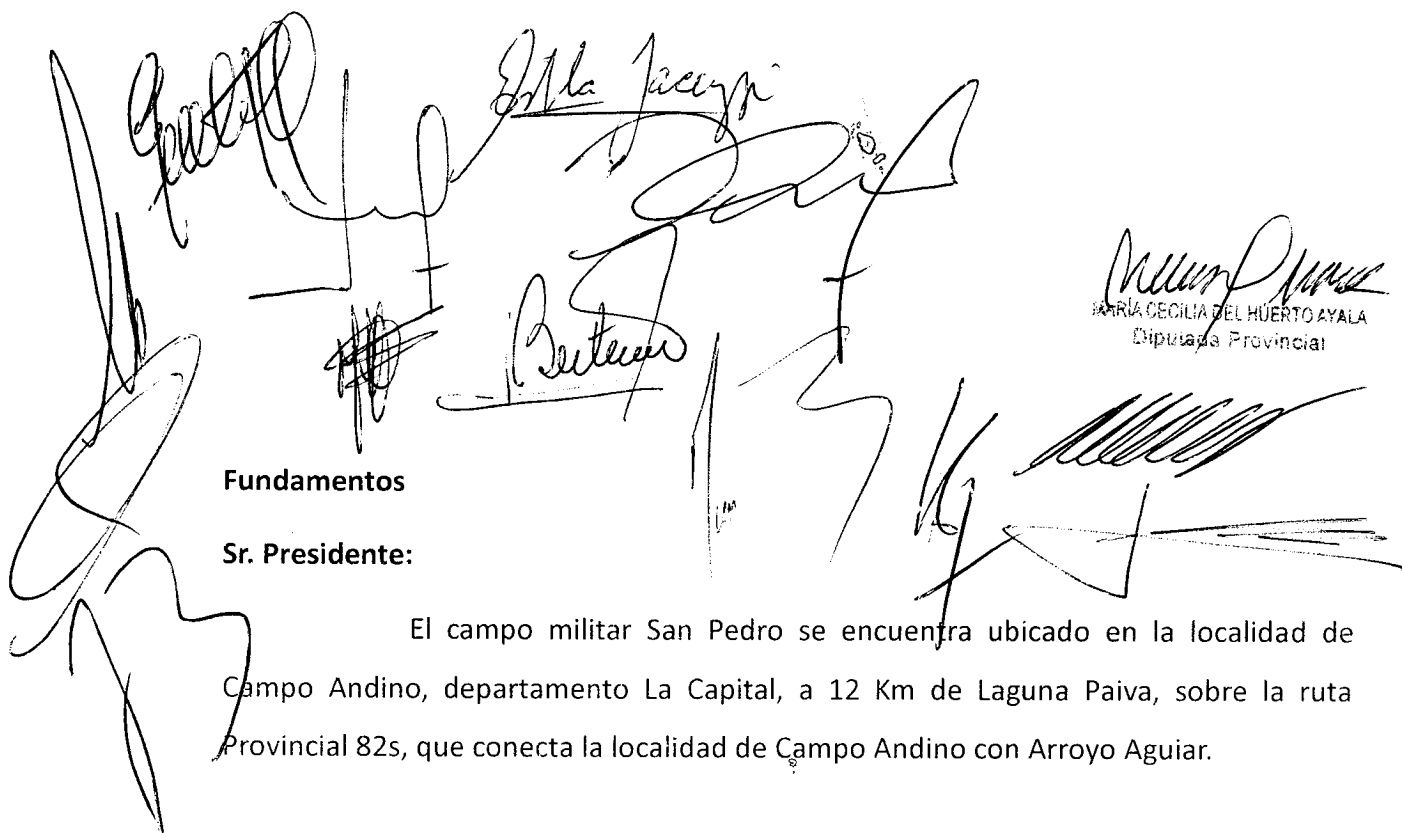 MARÍA CECILIA DEL HUERTO AYALA
Diputada Provincial
Fundamentos
Sr. Presidente:
El campo militar San Pedro se encuentra ubicado en la localidad de
Campo Andino, departamento La Capital, a 12 Km de Laguna Paiva, sobre la ruta
Provincial 82s, que conecta la localidad de Campo Andino con Arroyo Aguiar.